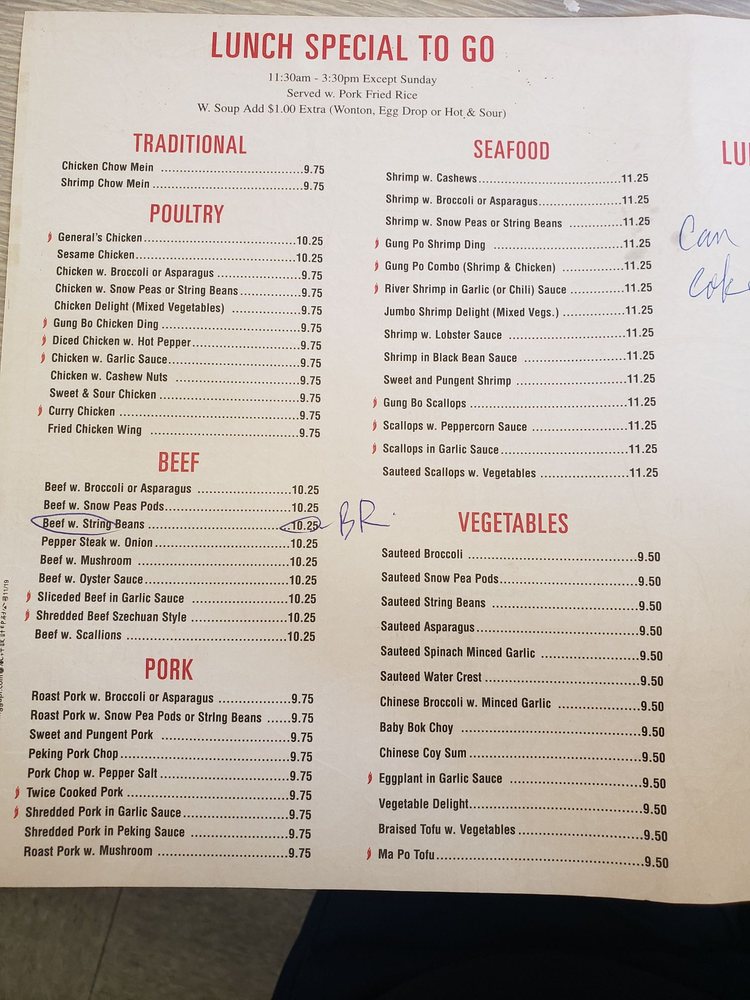 LUNCH SPECIAL TO GO
11:30am - 3:30pm Except Sunday
Served w. Pork Fried Rice
W. Soup Add $1.00 Extra (Wonton, Egg Drop or Hot & Sour)
TRADITIONAL
Chicken Chow Mein ....................................9.75
Shrimp Chow Mein ......................................9.75
POULTRY
General's Chicken.......................................10.25
Sesame Chicken.........................................10.25
Chicken w. Broccoli or Asparagus ....................9.75
Chicken w. Snow Peas or String Beans...............9.75
Chicken Delight (Mixed Vegetables) .................9.75
Gung Bo Chicken Ding ...................................9.75
Diced Chicken w. Hot Pepper...........................9.75
Chicken w. Garlic Sauce.................................9.75
Chicken w. Cashew Nuts ................................9.75
Sweet & Sour Chicken ...................................9.75
Curry Chicken .............................................9.75
Fried Chicken Wing .......................................9.75
BEEF
Beef w. Broccoli or Asparagus ........................10.25
Beef w. Snow Peas Pods................................10.25
Beef w. String Beans ....................................10.25 BR.
Pepper Steak w. Onion..................................10.25
Beef w. Mushroom .......................................10.25
Beef w. Oyster Sauce....................................10.25
Sliceded Beef in Garlic Sauce .........................10.25
Shredded Beef Szechuan Style .......................10.25
Beef w. Scallions .........................................10.25
PORK
Roast Pork w. Broccoli or Asparagus .................9.75
Roast Pork w. Snow Pea Pods or String Beans ......9.75
Sweet and Pungent Pork ................................9.75
Peking Pork Chop.........................................9.75
Pork Chop w. Pepper Salt................................9.75
Twice Cooked Pork .......................................9.75
Shredded Pork in Garlic Sauce.........................9.75
Shredded Pork in Peking Sauce .......................9.75
Roast Pork w. Mushroom ................................9.75
SEAFOOD
Shrimp w. Cashews.......................................11.25
Shrimp w. Broccoli or Asparagus......................11.25
Shrimp w. Snow Peas or String Beans ...............11.25
Gung Po Shrimp Ding ....................................11.25
Gung Po Combo (Shrimp & Chicken) .................11.25
River Shrimp in Garlic (or Chili) Sauce ...............11.25
Jumbo Shrimp Delight (Mixed Vegs.) .................11.25
Shrimp w. Lobster Sauce ...............................11.25
Shrimp in Black Bean Sauce ...........................11.25
Sweet and Pungent Shrimp .............................11.25
Gung Bo Scallops .........................................11.25
Scallops w. Peppercorn Sauce .........................11.25
Scallops in Garlic Sauce.................................11.25
Sauteed Scallops w. Vegetables .......................11.25
VEGETABLES
Sauteed Broccoli ..........................................9.50
Sauteed Snow Pea Pods..................................9.50
Sauteed String Beans .....................................9.50
Sauteed Asparagus........................................9.50
Sauteed Spinach Minced Garlic ........................9.50
Sauteed Water Crest ......................................9.50
Chinese Broccoli w. Minced Garlic .....................9.50
Baby Bok Choy .............................................9.50
Chinese Coy Sum ..........................................9.50
Eggplant in Garlic Sauce .................................9.50
Vegetable Delight..........................................9.50
Braised Tofu w. Vegetables ..............................9.50
Ma Po Tofu..................................................9.50
LU
Can
Coke